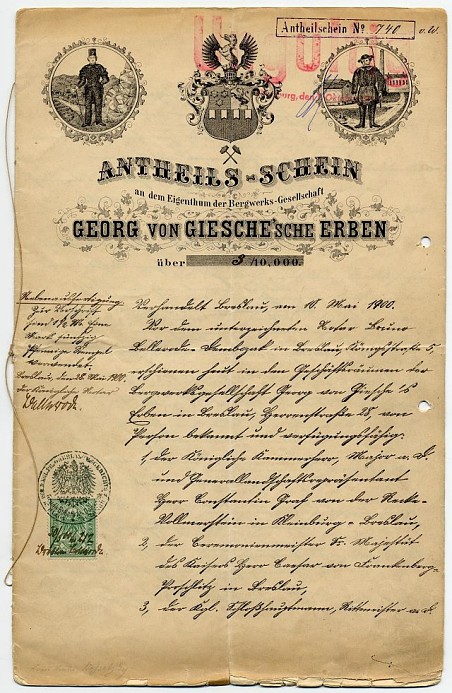 Antheilschein № 740 v. W.
Ungültig
ANTHEILS-SCHEIN
an dem Eigenthum der Bergwerks-Gesellschaft
GEORG VON GIESCHE'SCHE ERBEN
über 8/10,000.
Verhandelt Breslau, am 18. Mai 1900.
Vor dem unterzeichneten Notar Bruno
Bellerode in Breslau, Königstraße 5,
erschienen heut in den Geschäftsräumen der
Bergwerksgesellschaft Georg von Giesche's
Erben in Breslau, Herrenstraße 28, von
Person bekannt und verfügungsfähig:
1, der Königliche Kammerherr, Major a. D.
und Generallandschaftsrepräsentant
Herr Constantin Graf von der Recke-
Vollmerstein in Kleinburg-Breslau,
2, der Ceremonienmeister Sr. Majestät
des Kaisers Herr Caesar von Frankenberg-
Proschlitz in Breslau,
3, der Kgl. Schloßhauptmann, Rittmeister a. D.
Nebenausfertigung
Mark fünfzig
Pfennige Stempel
verwendet.
Breslau, den 28. Mai 1900.
Der Königliche Notar
Bellerode.